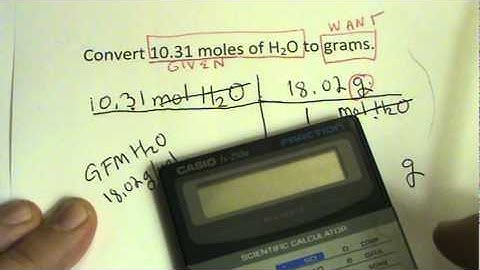 WANT
Convert 10.31 moles of H₂O to grams.
GIVEN
10.31 mol H₂O 18.02 g
1 mol H₂O
GFM H₂O
18.02 g/mol
g
CASIO FRACTION
SCIENTIFIC CALCULATOR